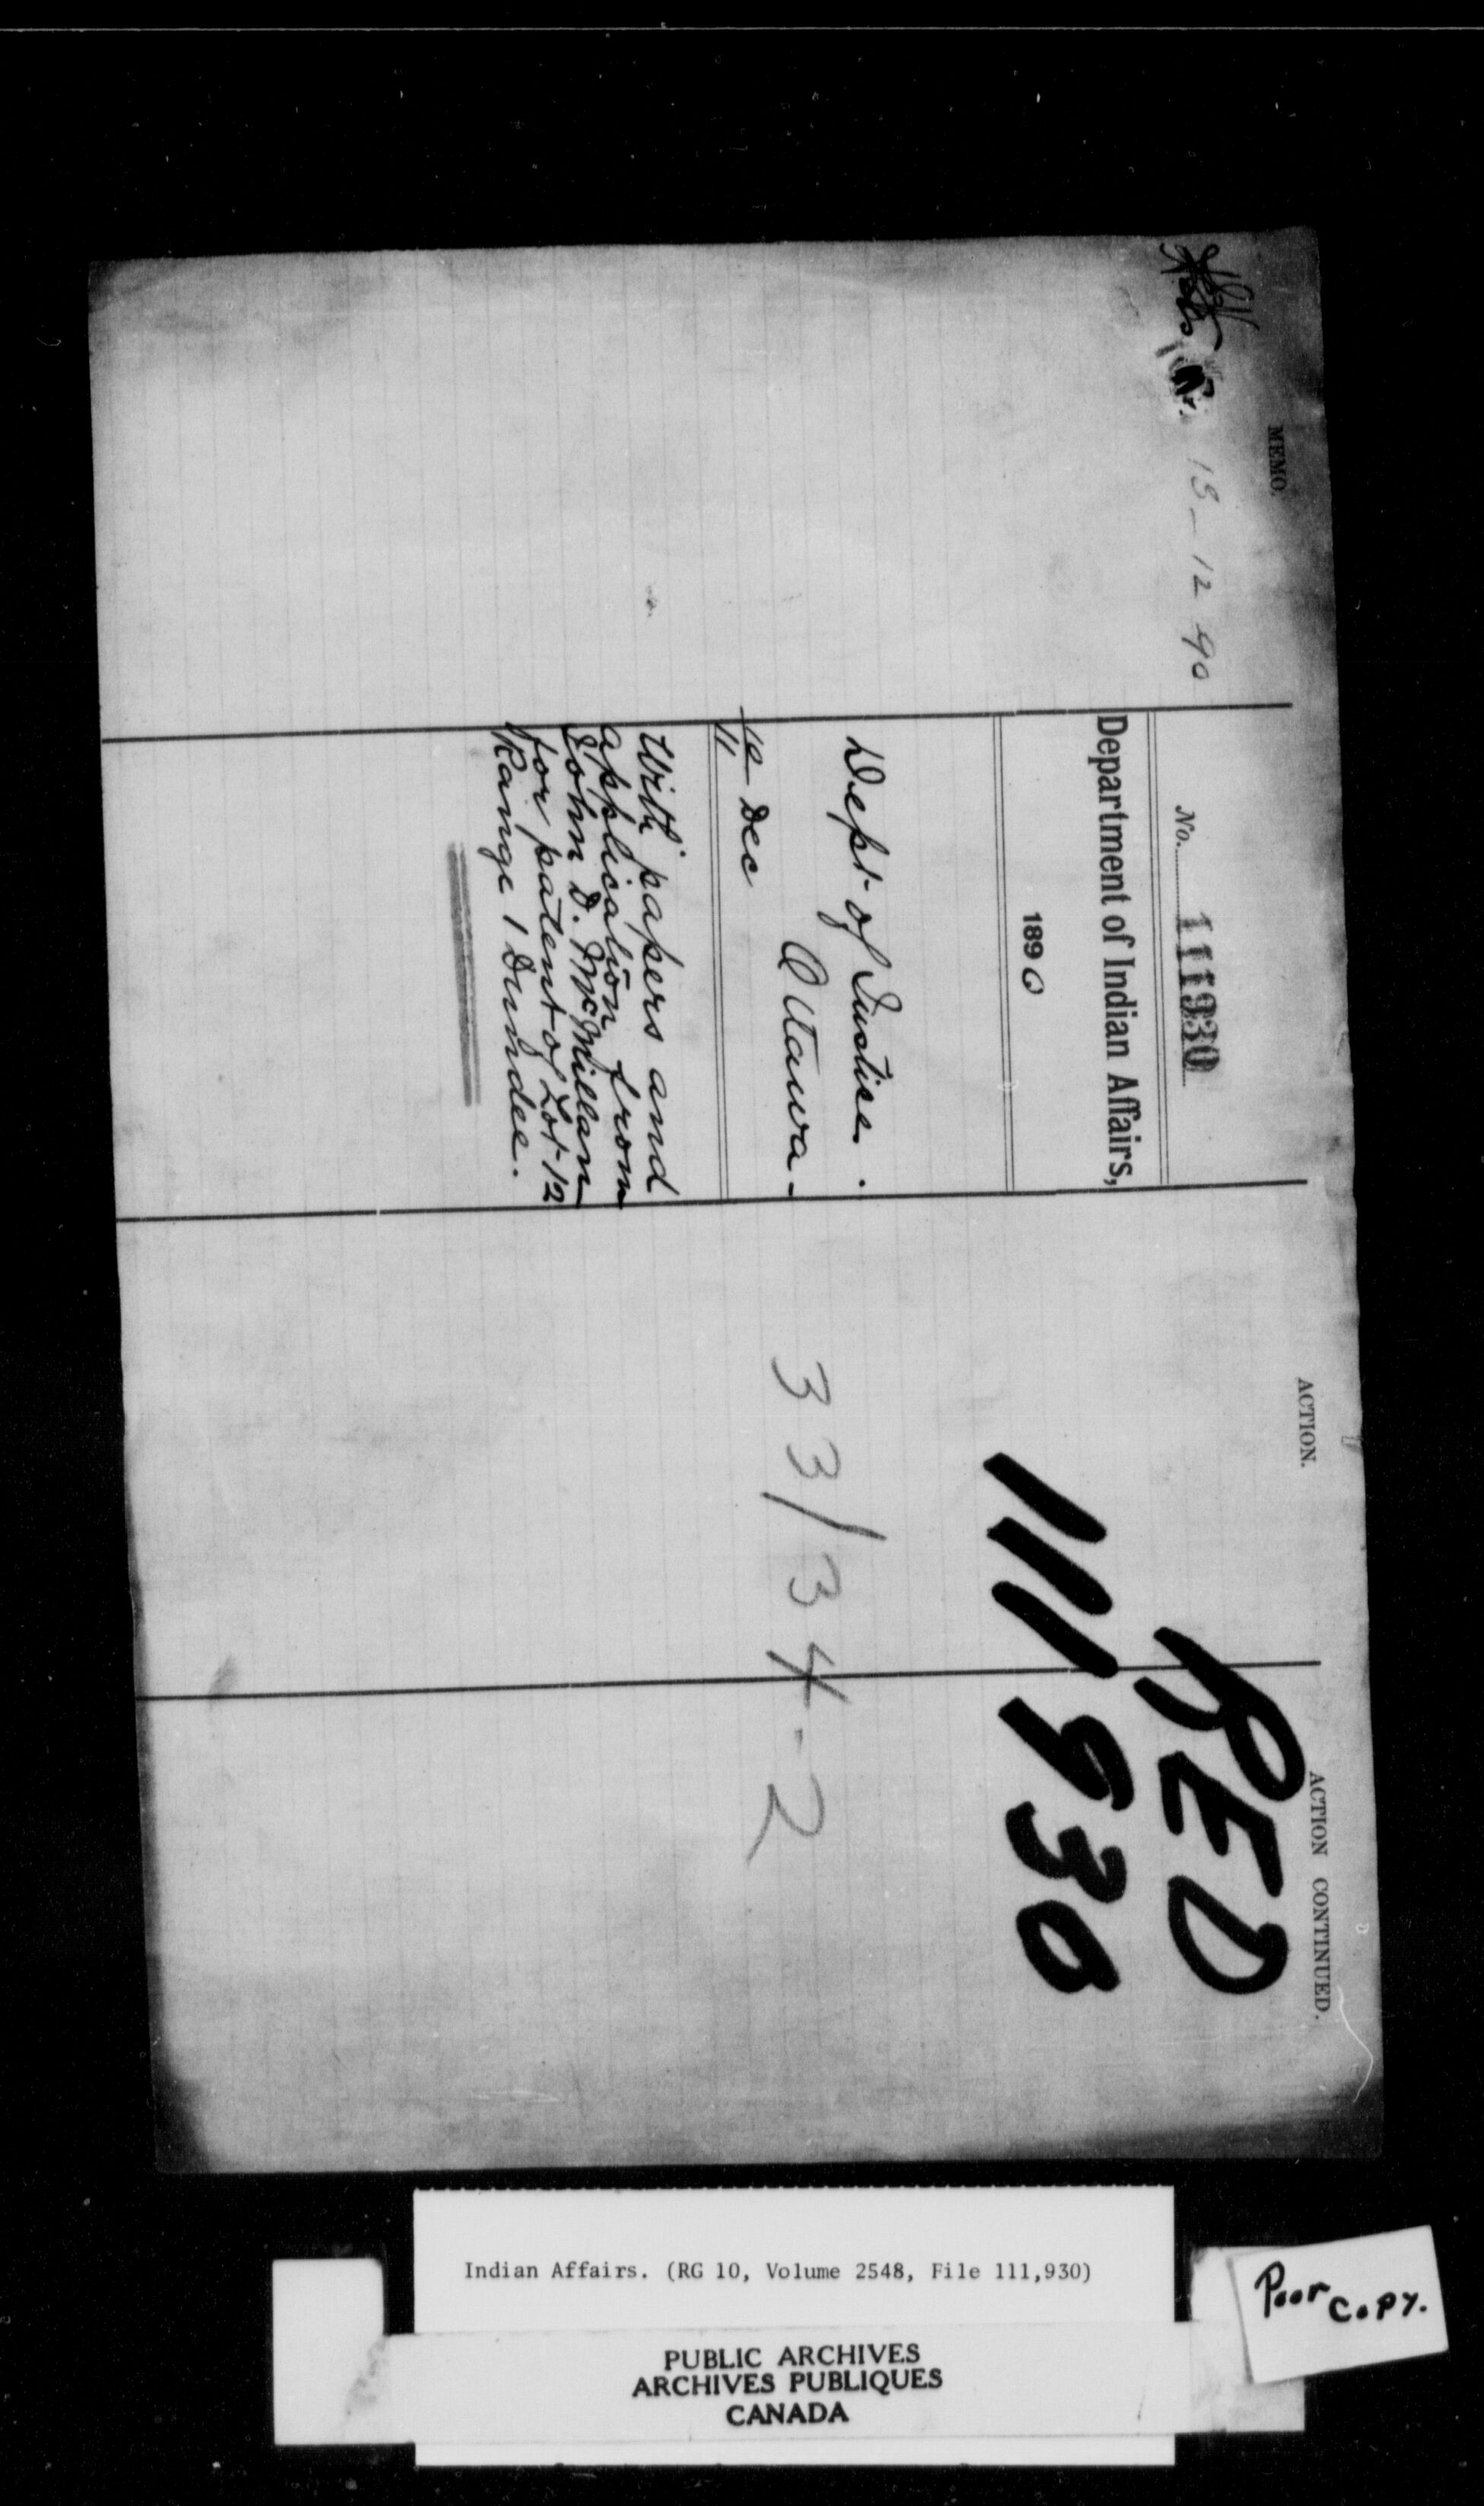 MEMO.
15-12 90
No. 111930
Department of Indian Affairs,
1890
Dept- of Justice.
Ottawa-
10 Dec
11
With papers and
application from
John D. McMillan
for patent of Lot-12
Range 1 Dundee.
ACTION.
33/34-2
ACTION CONTINUED.
RED
111930
Indian Affairs. (RG 10, Volume 2548, File 111,930)
PUBLIC ARCHIVES
ARCHIVES PUBLIQUES
CANADA
Poor
COPY.